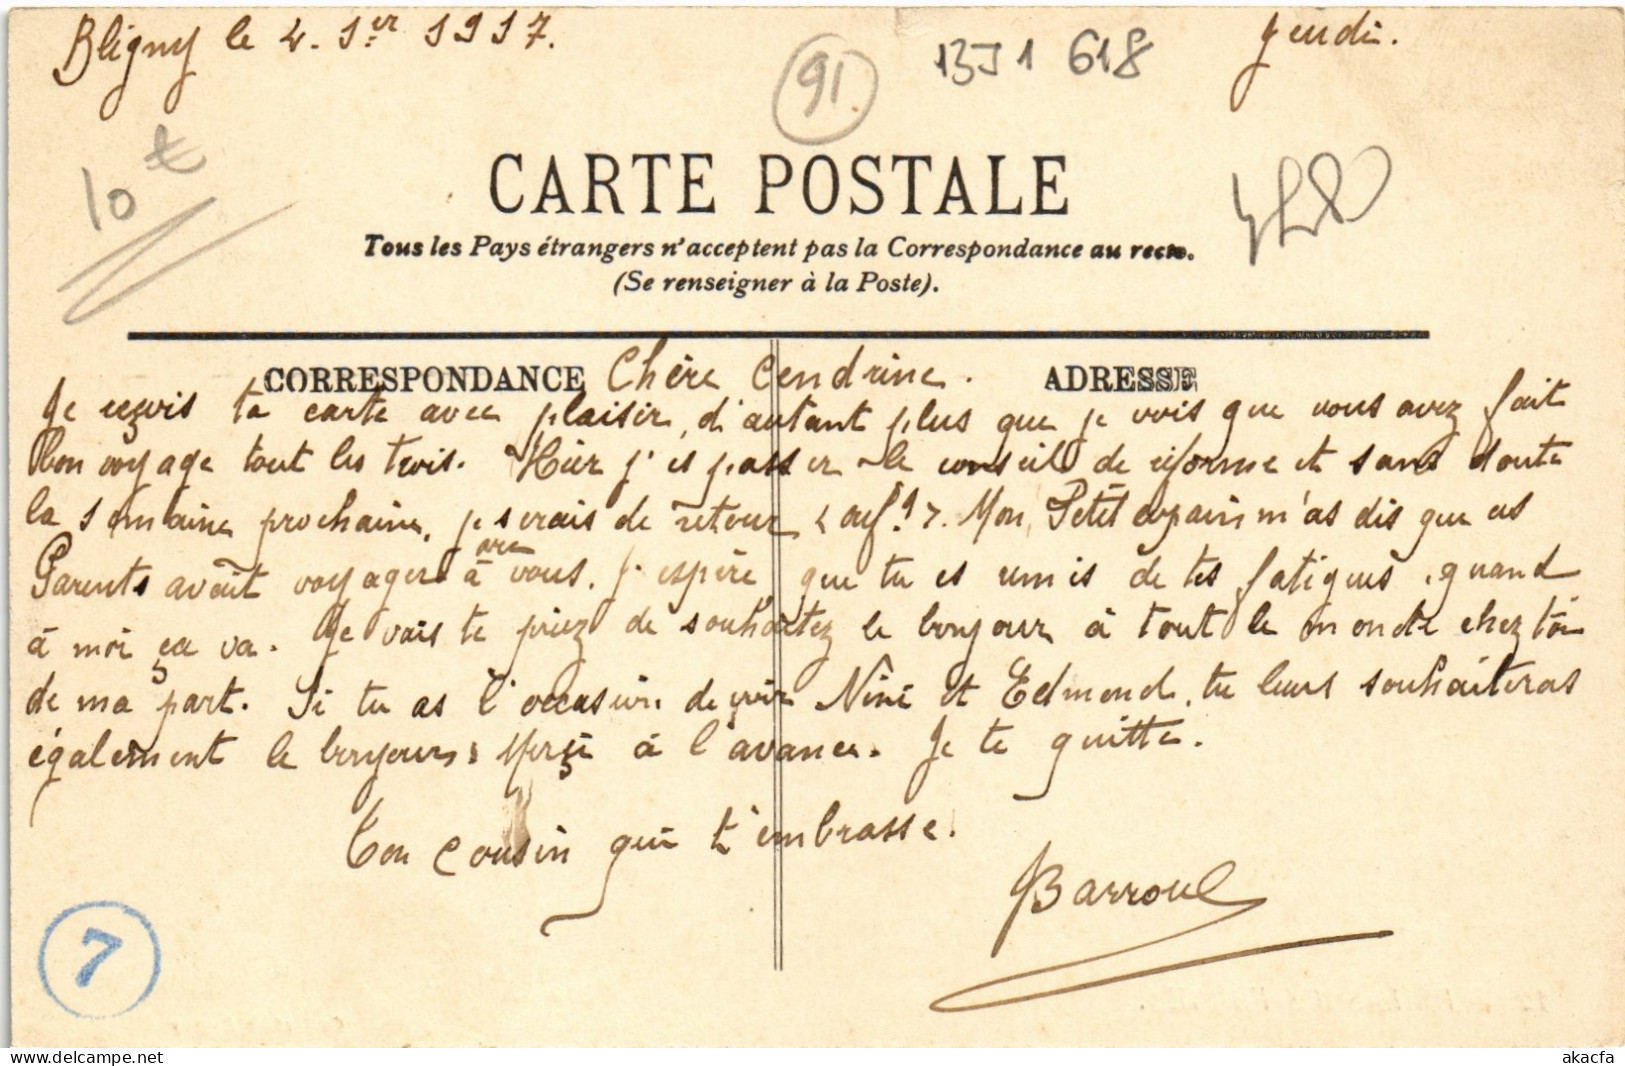 Bligny le 4. 1er 1917.
Jeudi.
91.
13J1 618
10 €
CARTE POSTALE
Tous les Pays étrangers n'acceptent pas la Correspondance au recto.
(Se renseigner à la Poste).
CORRESPONDANCE
ADRESSE
Chère Cendrine.
Je reçvis ta carte avec plaisir, d'autant plus que je vois que vous avez fait
bon voyage tout les trois. Hier j'es passer le conseil de réforme et sans doute
la semaine prochaine, je serais de retour < ouf! >. Mon Petit copain m'as dis que ces
Parents avait voyager à avec vous. J'espère que tu es remis de tes fatigues, quand
à moi ça va. Je vais te priez de souhaitez le bonjour à tout le monde chez toi
de ma part. Si tu as l'occasion de voir Nini et Edmond, tu leurs souhaiteras
également le bonjour; Merçi à l'avance. Je te quitte.
Ton cousin qui t'embrasse.
Barroul
7
akacfa